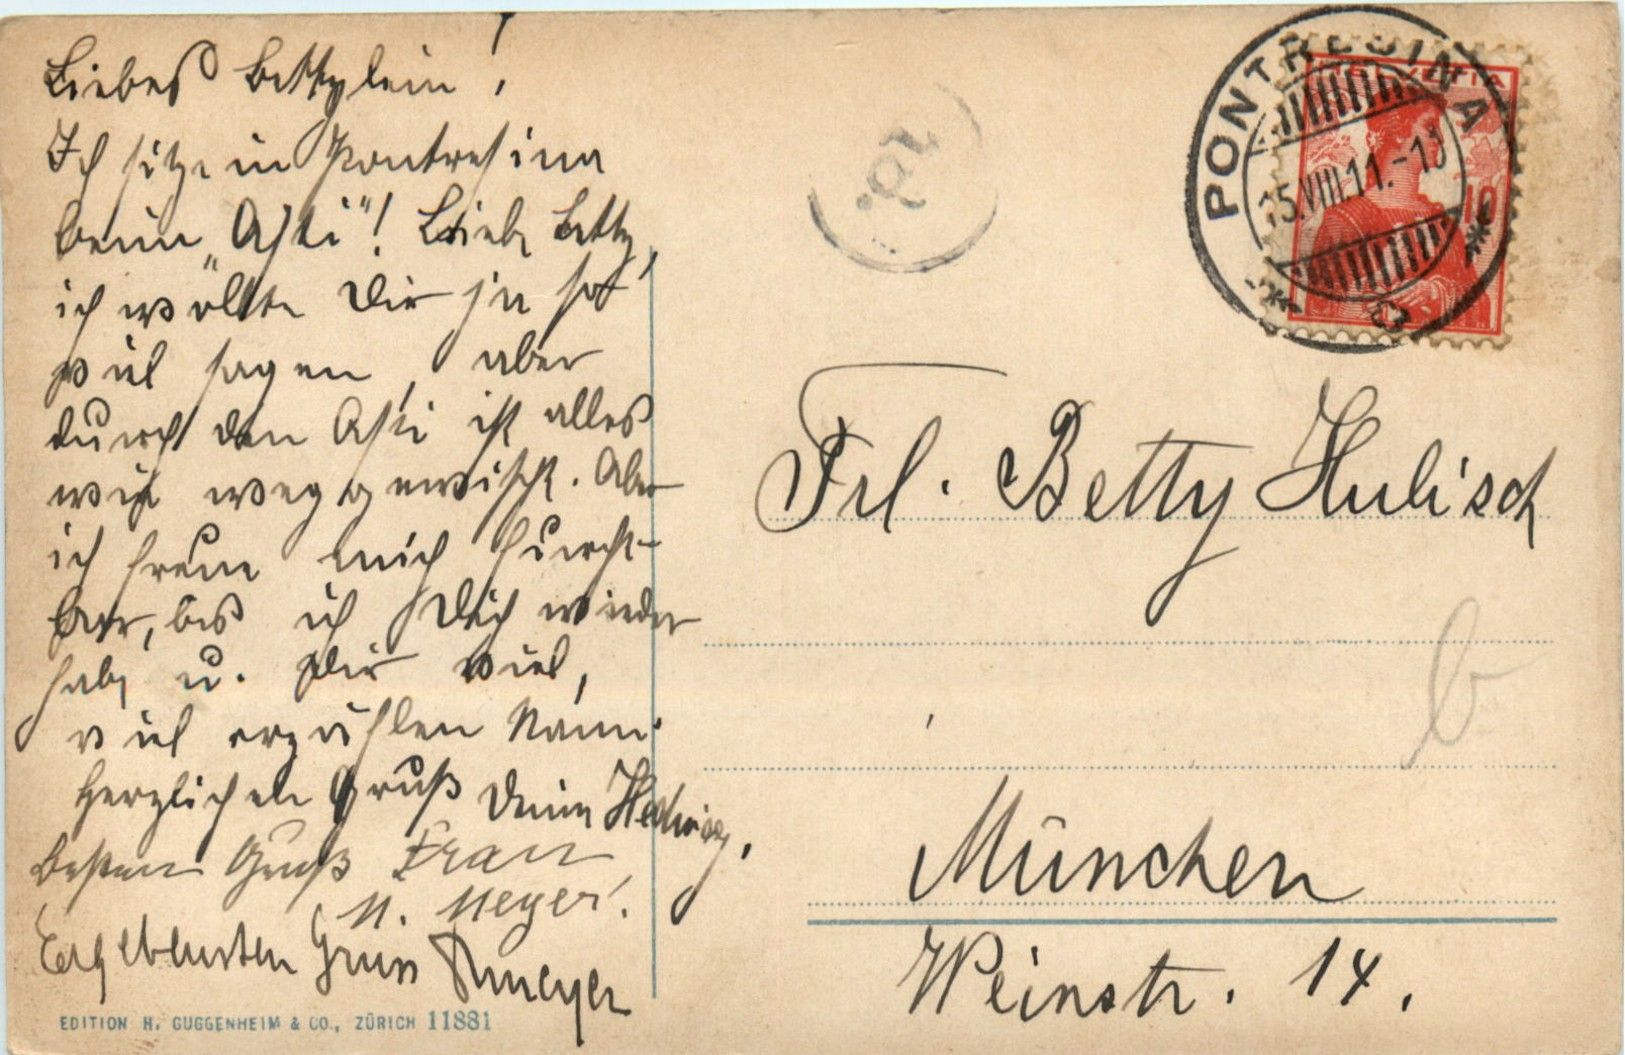 Liebes Bettylein!
Ich sitze in Pontresina
beim „Asti"! Liebe Betty,
ich wollte Dir ja so
viel sagen, aber
durch den Asti ist alles
wie weggewischt. Aber
ich freue mich furcht-
bar, bis ich Dich wieder
habe u. Dir viel,
viel erzählen kann.
Herzlichen Gruß Deine Hedwig.
Besten Gruß Frau
M. Meyer.
Ergebensten Gruss
EDITION H. GUGGENHEIM & CO., ZÜRICH 11881
PONTRESINA
15.VIII.11.-13
10
Frl. Betty Hulisch
b
München
Weinstr. 14.